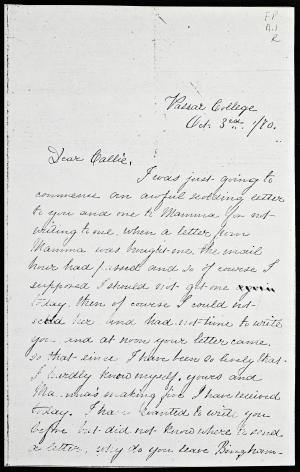 FP
A.1
R
Vassar College
Oct. 3rd. /70.
Dear Callie,
I was just going to
commence an awful scolding letter
to you and one to Mamma for not
writing to me, when a letter from
Mamma was brought me, the mail
hour had passed and so of course I
supposed I should not get one
today, then of course I could not
scold her and had not time to write
you, and at noon your letter came
so that since I have been so lively that
I hardly know myself, yours and
Mamma's making five I have received
today. I have wanted to write you
before but did not know where to send
a letter, why do you leave Bingham-